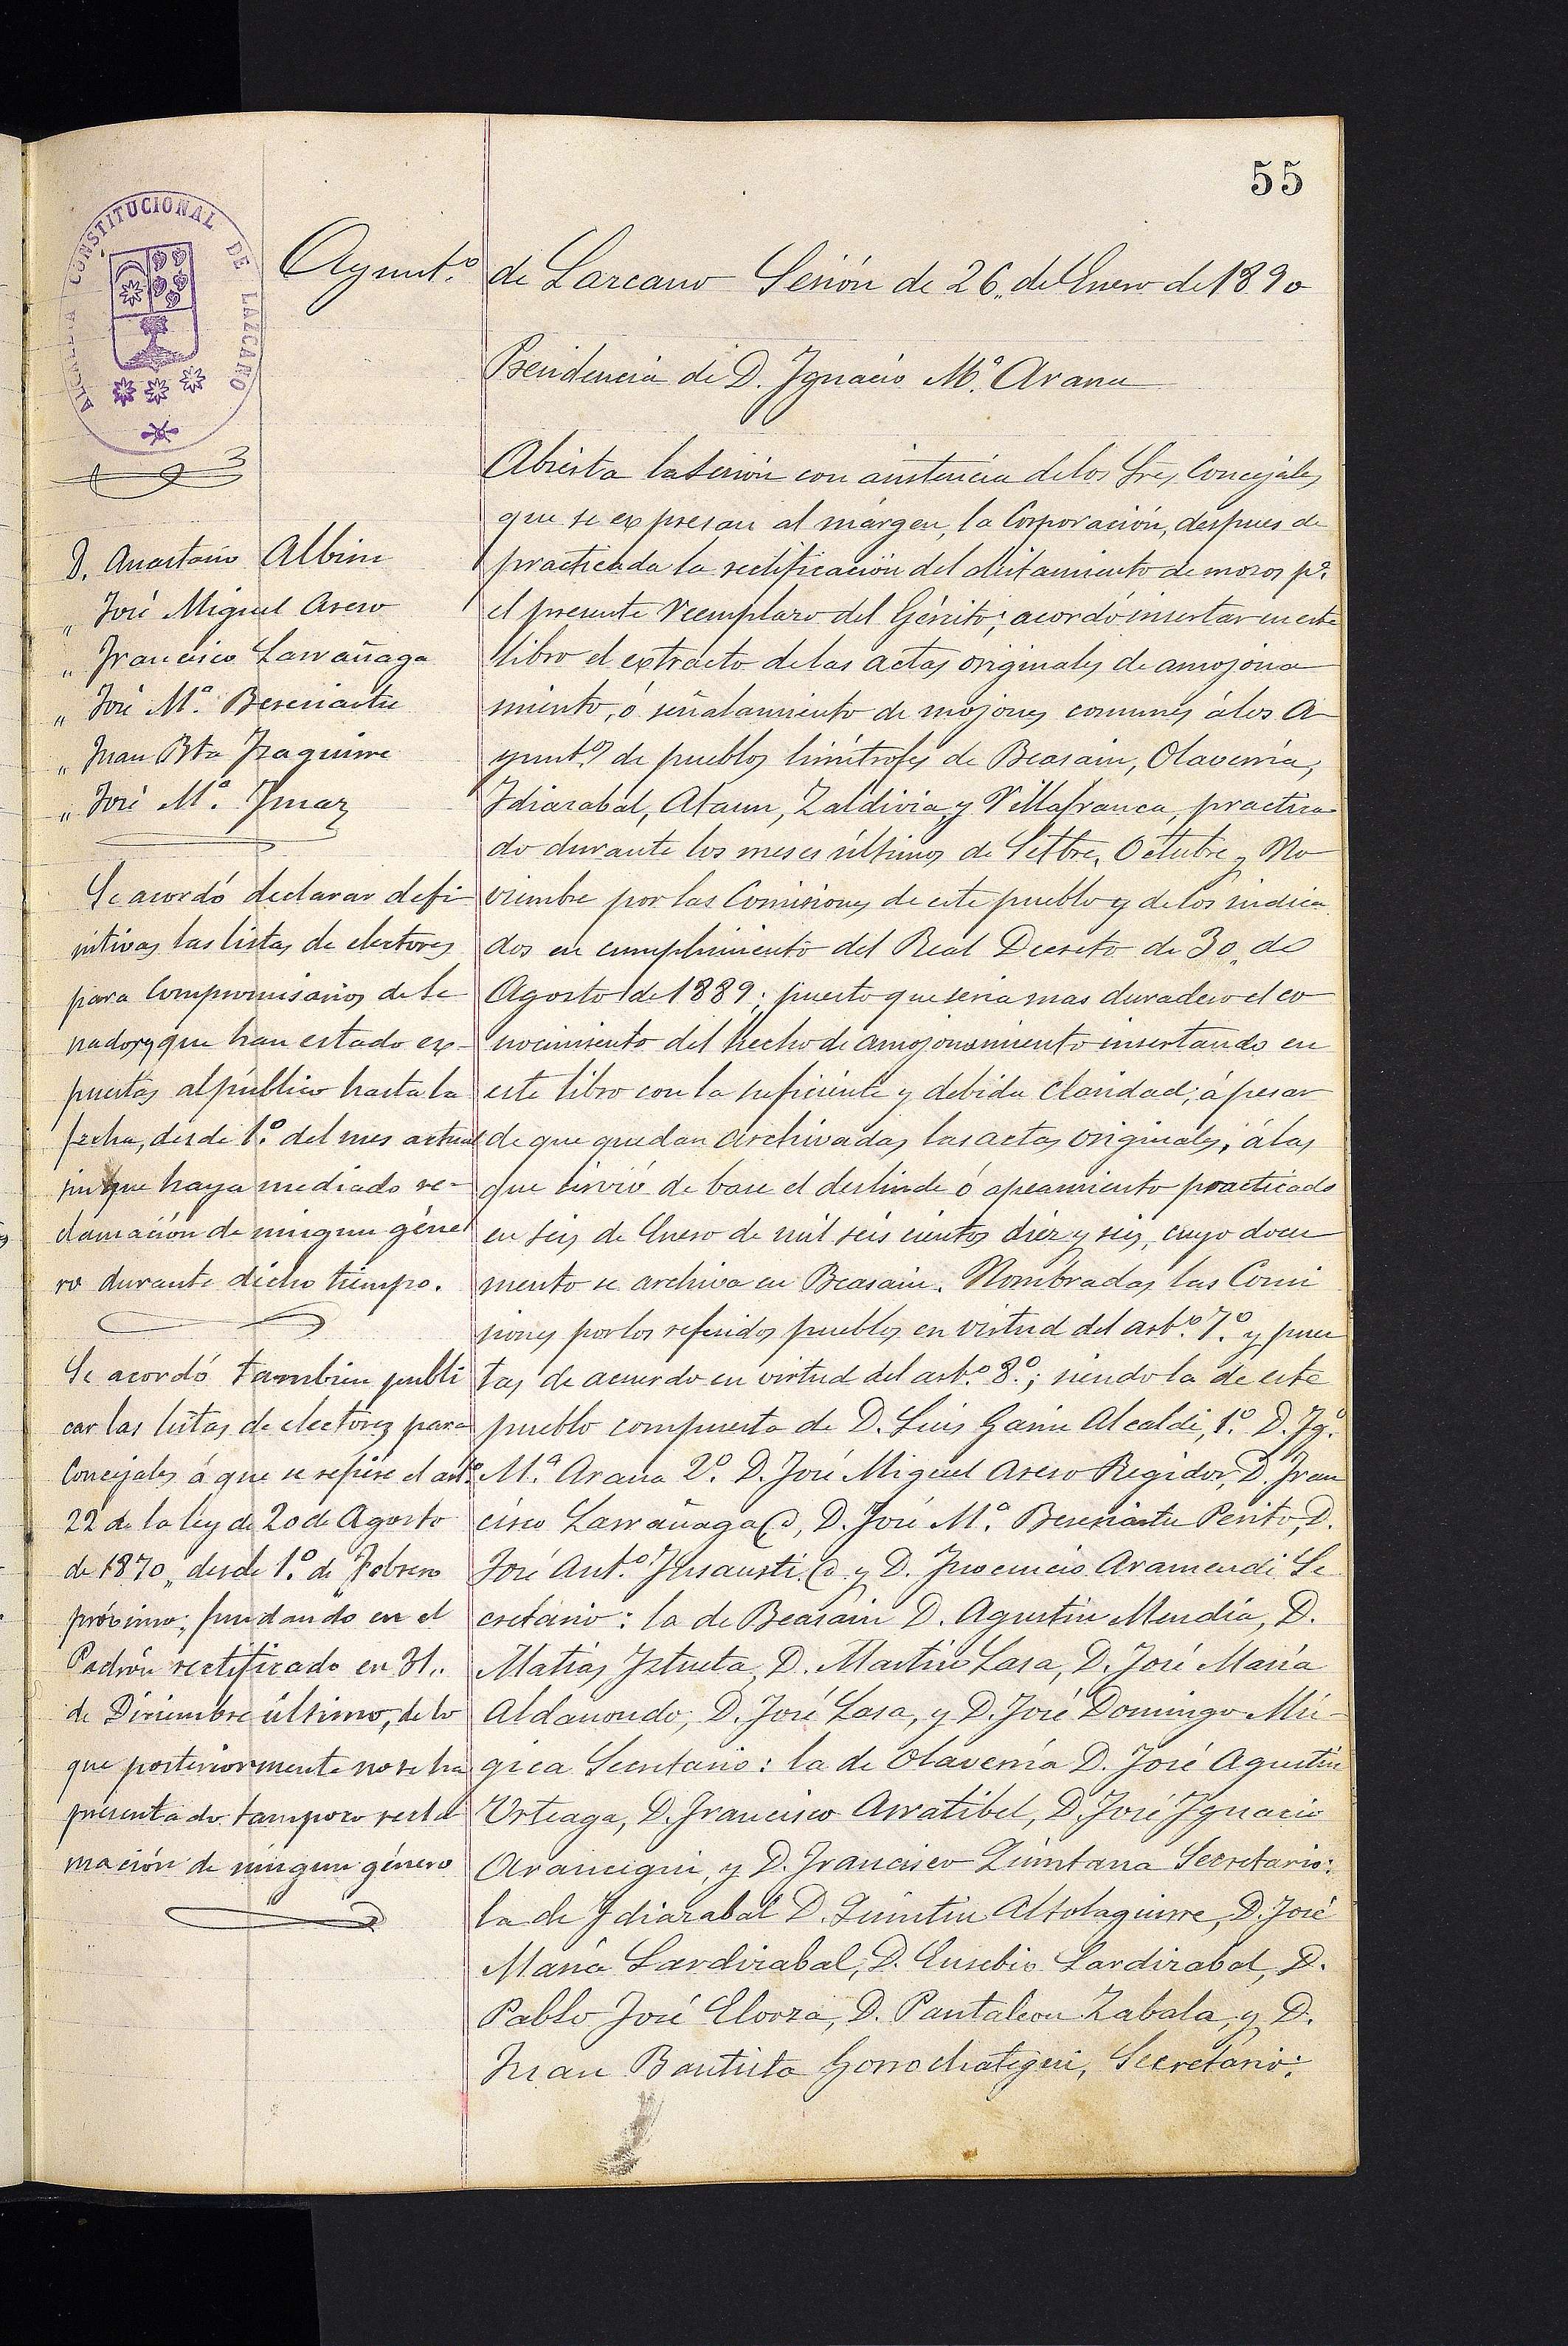 55
ALCALDIA CONSTITUCIONAL DE LAZCANO
Ayunt.º de Lazcano Sesión de 26. de Enero de 1890
Presidencia de D. Ygnacio M.ª Arana
D. Anastasio Albisu
„ José Miguel Asero
„ Francisco Larrañaga
„ José M.ª Bereciartu
„ Juan Bta Yzaguirre
„ José M.ª Ymaz
Se acordó declarar defi
nitivas las listas de electores
para Compromisarios de Se
nadores que han estado ex-
puestas al público hasta la
fecha, desde 1.º del mes actual
sin que haya mediado re-
clamación de ningun géne
ro durante dicho tiempo.
Se acordó tambien publi
car las listas de electores para
Concejales á que se refiere el artº
22 de la ley de 20 de Agosto
de 1870„ desde 1.º de Febrero
próximo; fundando en el
Padrón rectificado en 31..
de Diciembre último, de lo
que posteriormente no se ha
presentado tampoco recla
mación de ningun género
Abierta la sesión con asistencia de los Sres Concejales
que se expresan al márgen, la Corporación, despues de
practicada la rectificación del alistamiento de mozos pª.
el presente reemplazo del Ejército; acordó insertar en este
libro el extracto de las actas originales de amojona
miento, ó señalamiento de mojones comunes á los A-
yuntºs de pueblos limítrofes de Beasain, Olaverría,
Ydiazabal, Ataun, Zaldivia y Villafranca, practica
do durante los meses últimos de Setbre, Octubre y No
viembre por las Comisiones de este pueblo y de los indica
dos en cumplimiento del Real Decreto de 30„ de
Agosto de 1889; puesto que seria mas duradero el co
nocimiento del hecho de amojonamiento insertando en
este libro con la suficiente y debida claridad; á pesar
de que quedan archivadas las actas originales, á las
que sirvió de base el deslinde ó apeamiento practicado
en seis de Enero de mil seis cientos diez y seis, cuyo docu
mento se archiva en Beasain. Nombradas las Comi
siones por los referidos pueblos en virtud del artº. 7.º y pues
tas de acuerdo en virtud del artº. 8.º; siendo la de este
pueblo compuesta de D. Luis Garin Alcalde, 1.º D. Ygº.
M.ª Arana 2.º D. José Miguel Asero Regidor, D. Fran
cisco Larrañaga @, D. José M.ª Bereciartu Perito, D.
José Ant.º Ynsausti @ y D. Ynocencio Aramendi Se
cretario: la de Beasain D. Agustin Mendía, D.
Matias Yztueta, D. Martin Lasa, D. José María
Aldanondo, D. José Lasa, y D. José Domingo Mú-
gica Secretario: la de Olaverría D. José Agustin
Urteaga, D. Francisco Arratibel, D. José Ygnacio
Arancegui, y D. Francisco Quintana Secretario:
la de Ydiazabal D. Quintin Altolaguirre, D. José
María Lardizabal, D. Eusebio Lardizabal, D.
Pablo José Elorza, D. Pantaleon Zabala, y D.
Juan Bautista Gorrochategui, Secretario: